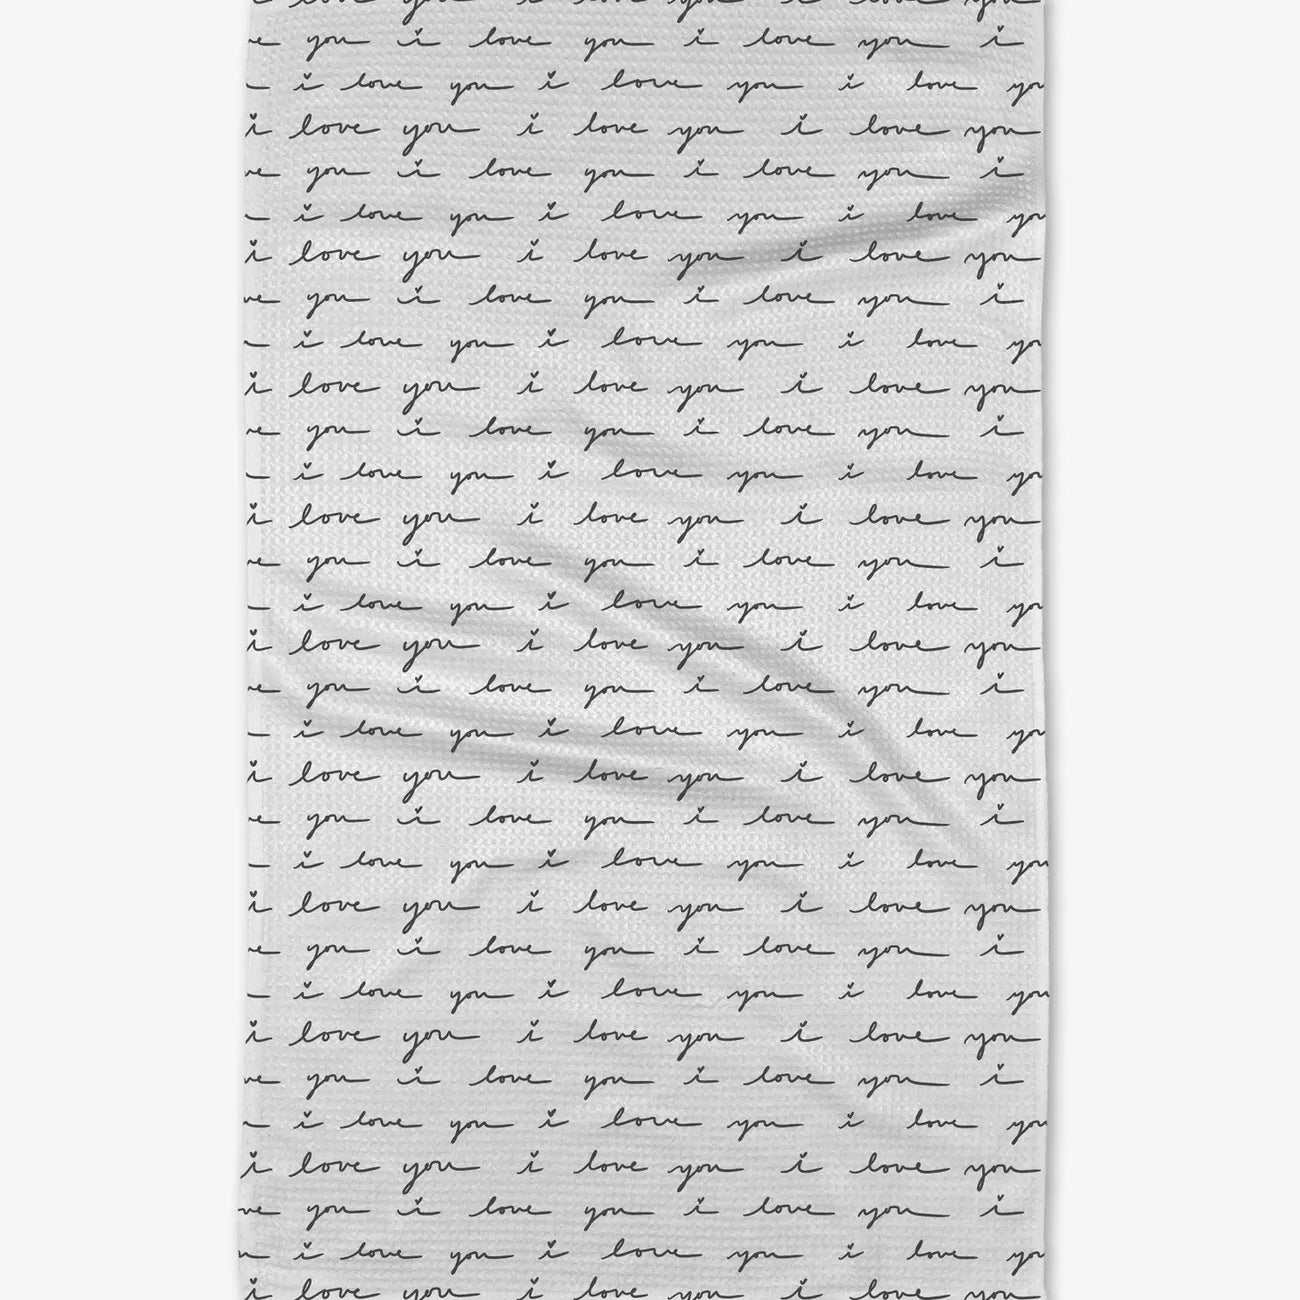 i love you i love you i love you
you i love you i love you i
i love you i love you i love yo
i love you i love you i love you
you i love you i love you i
i love you i love you i love yo
i love you i love you i love you
you i love you i love you i
i love you i love you i love yo
i love you i love you i love you
you i love you i love you i
i love you i love you i love yo
i love you i love you i love you
you i love you i love you i
i love you i love you i love yo
i love you i love you i love you
you i love you i love you i
i love you i love you i love yo
i love you i love you i love you
you i love you i love you i
i love you i love you i love you
i love you i love you i love you
you i love you i love you i
i love you i love you i love you
i love you i love you i love you
you i love you i love you i
i love you i love you i love you
i love you i love you i love you
you i love you i love you i
i love you i love you i love yo
i love you i love you i love you